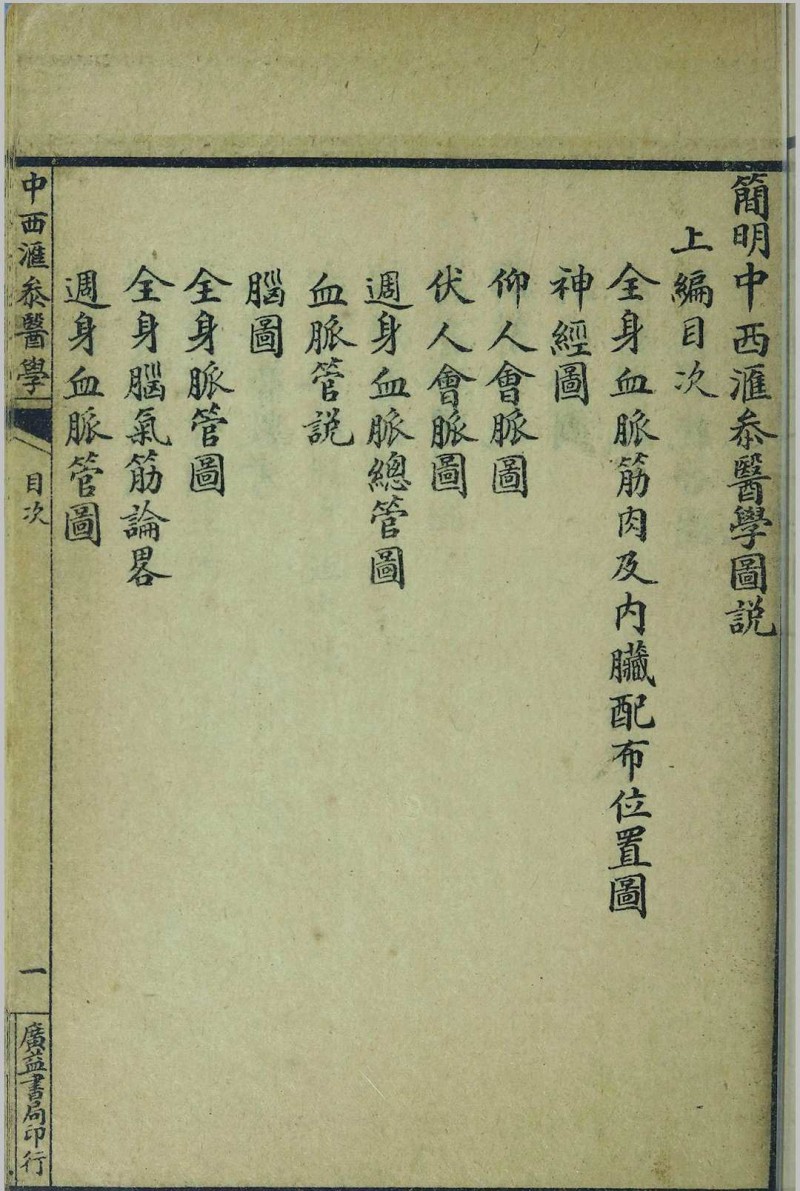 簡明中西滙叅醫學圖説
上編目次
全身血脈筋肉及内臟配布位置圖
神經圖
仰人會脈圖
伏人會脈圖
週身血脈總管圖
血脈管説
腦圖
全身脈管圖
全身腦氣筋論畧
週身血脈管圖
中西滙叅醫學
目次
一
廣益書局印行